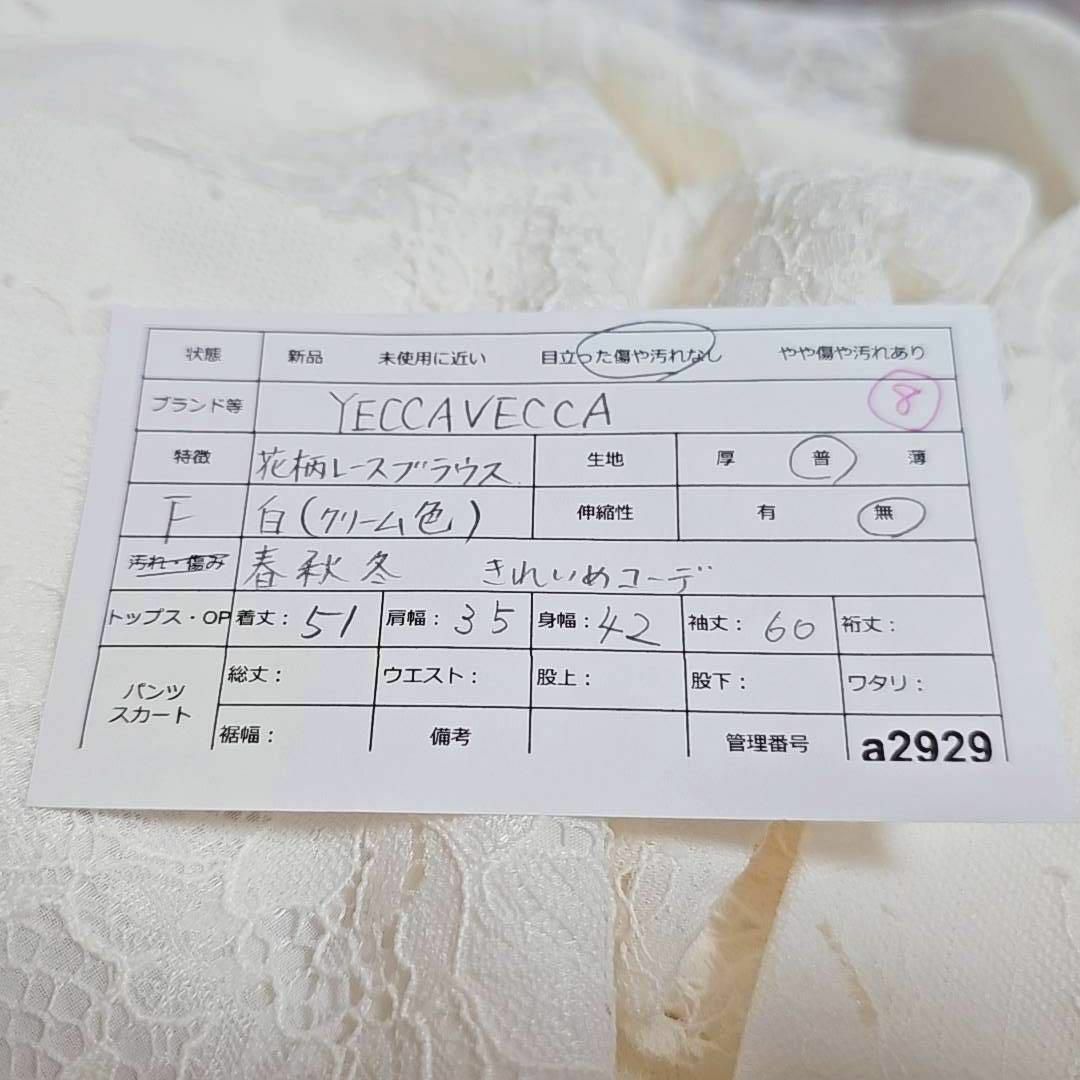 状態 新品 未使用に近い 目立った傷や汚れなし やや傷や汚れあり
ブランド等 YECCAVECCA 8
特徴 花柄レースブラウス 生地 厚 普 薄
F 白(クリーム色) 伸縮性 有 無
汚れ・傷み 春秋冬 きれいめコーデ
トップス・OP 着丈: 51 肩幅: 35 身幅: 42 袖丈: 60 裄丈:
パンツ スカート 総丈: ウエスト: 股上: 股下: ワタリ:
裾幅: 備考 管理番号 a2929